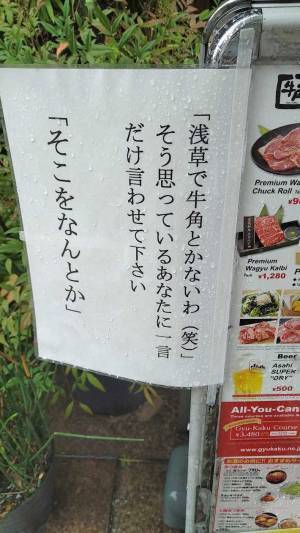 「浅草で牛角とかないわ（笑）」
そう思っているあなたに一言
だけ言わせて下さい
「そこをなんとか」
牛
Premium Wa
Chuck Roll
Premium
Wagyu Kalbi
¥1,280
Beer
Asahi
SUPER
"DRY"
¥500
All-You-Can
Gyu-Kaku Course
¥3,480
www.gyukaku.ne